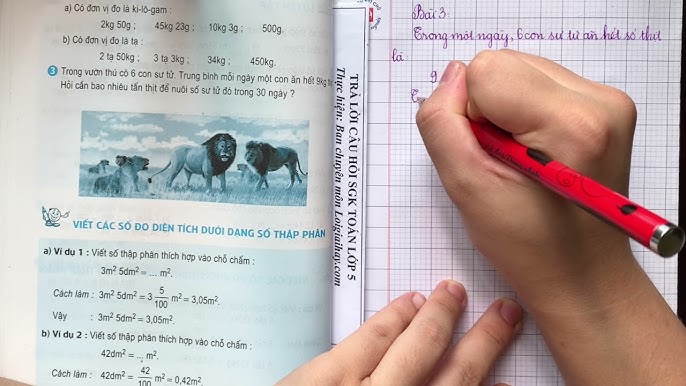 a) Có đơn vị đo là ki-lô-gam :
2kg 50g ; 45kg 23g ; 10kg 3g ; 500g.
b) Có đơn vị đo là tạ :
2 tạ 50kg ; 3 tạ 3kg ; 34kg ; 450kg.
3 Trong vườn thú có 6 con sư tử. Trung bình mỗi ngày một con ăn hết 9kg
Hỏi cần bao nhiêu tấn thịt để nuôi số sư tử đó trong 30 ngày ?
VIẾT CÁC SỐ ĐO DIỆN TÍCH DƯỚI DẠNG SỐ THẬP PHÂN
a) Ví dụ 1 : Viết số thập phân thích hợp vào chỗ chấm :
3m² 5dm² = ... m².
Cách làm : 3m² 5dm² = 3 5/100 m² = 3,05m².
Vậy : 3m² 5dm² = 3,05m².
b) Ví dụ 2 : Viết số thập phân thích hợp vào chỗ chấm :
42dm² = ... m².
Cách làm : 42dm² = 42/100 m² = 0,42m².
TRẢ LỜI CÂU HỎI SGK TOÁN LỚP 5
Thực hiện: Ban chuyên môn Loigiaihay.com
Bài 3:
Trong một ngày, 6 con sư tử ăn hết số thịt
là:
9